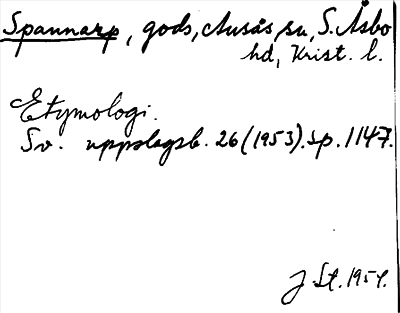 Spannarp, gods, Ausås sn, S. Åsbo
hd, Krist. l.
Etymologi.
Sv. uppslagsb. 26 (1953). sp. 1147.
J St. 1954.